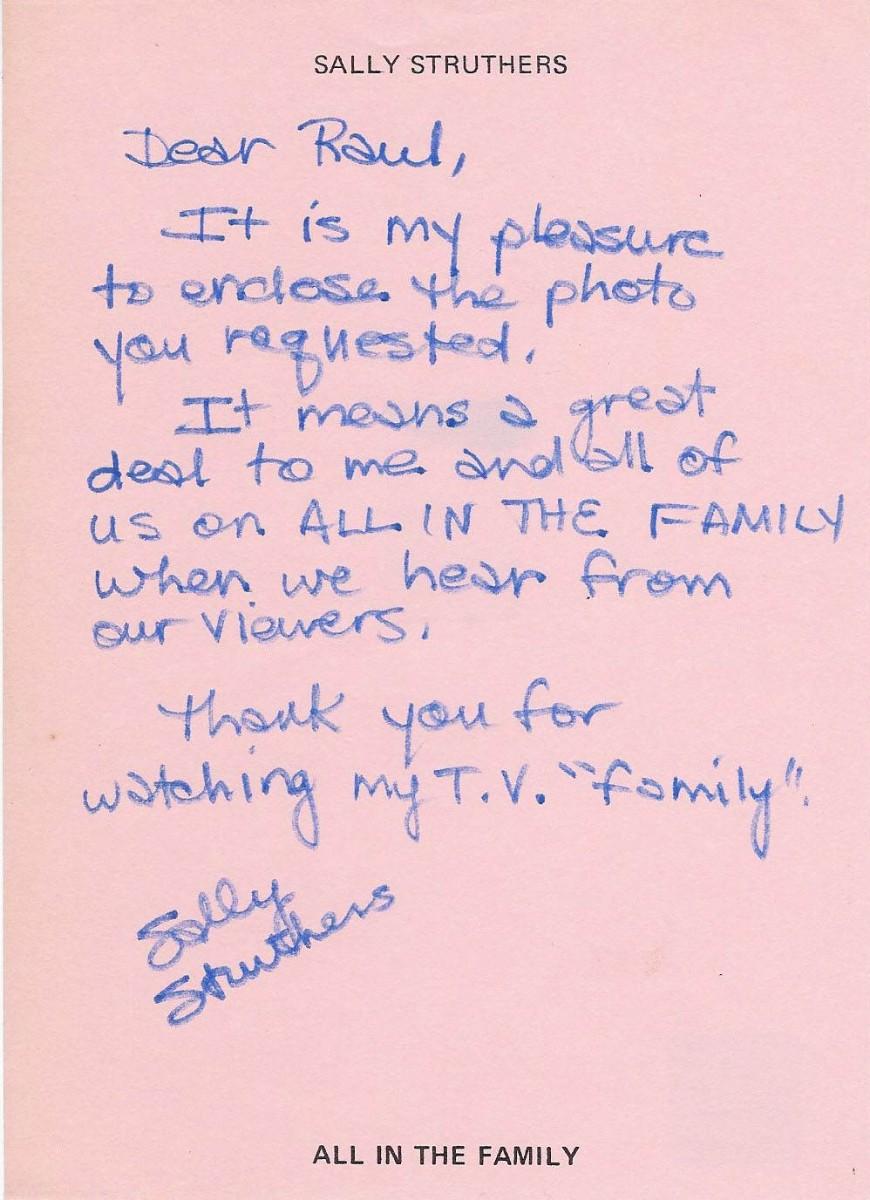 SALLY STRUTHERS
Dear Raul,
It is my pleasure
to enclose the photo
you requested.
It means a great
deal to me and all of
us on ALL IN THE FAMILY
when we hear from
our viewers.
Thank you for
watching my T.V. "family".
Sally
Struthers
ALL IN THE FAMILY